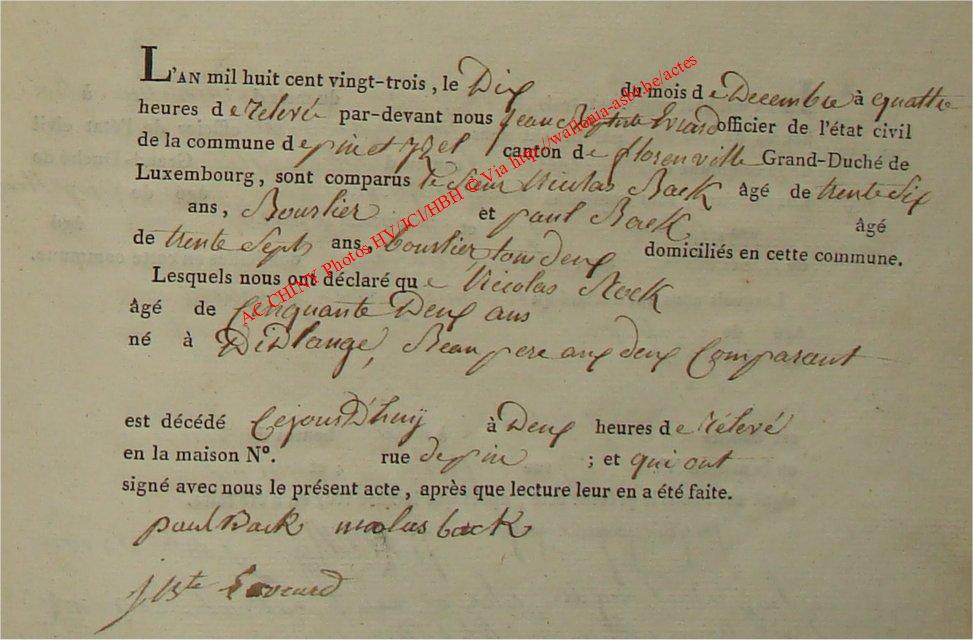 L'AN mil huit cent vingt-trois, le Dix du mois de Decembre à quattre
heures de rélevé par-devant nous Jean Bptiste Evrard officier de l'état civil
de la commune de pin et Izel canton de florenville Grand-Duché de
Luxembourg, sont comparus le Sieur Nicolas Back âgé de trente Six
ans, Bourlier et paul Back âgé
de trente Sept ans, bourlier, tous deux domiciliés en cette commune.
Lesquels nous ont déclaré que Nicolas
âgé de Cinquante Deux ans
né à DiDlange, Beau pere aux deux Comparant
est décédé Cejours D'huij à Deux heures de rélevé
en la maison N°. rue de pin ; et qui ont
signé avec nous le présent acte, après que lecture leur en a été faite.
paul Back nicolas back
J Bte Evrard
AC CHINY Photos HV/JCI/HBH © Via http://wallonia-asbl.be/actes